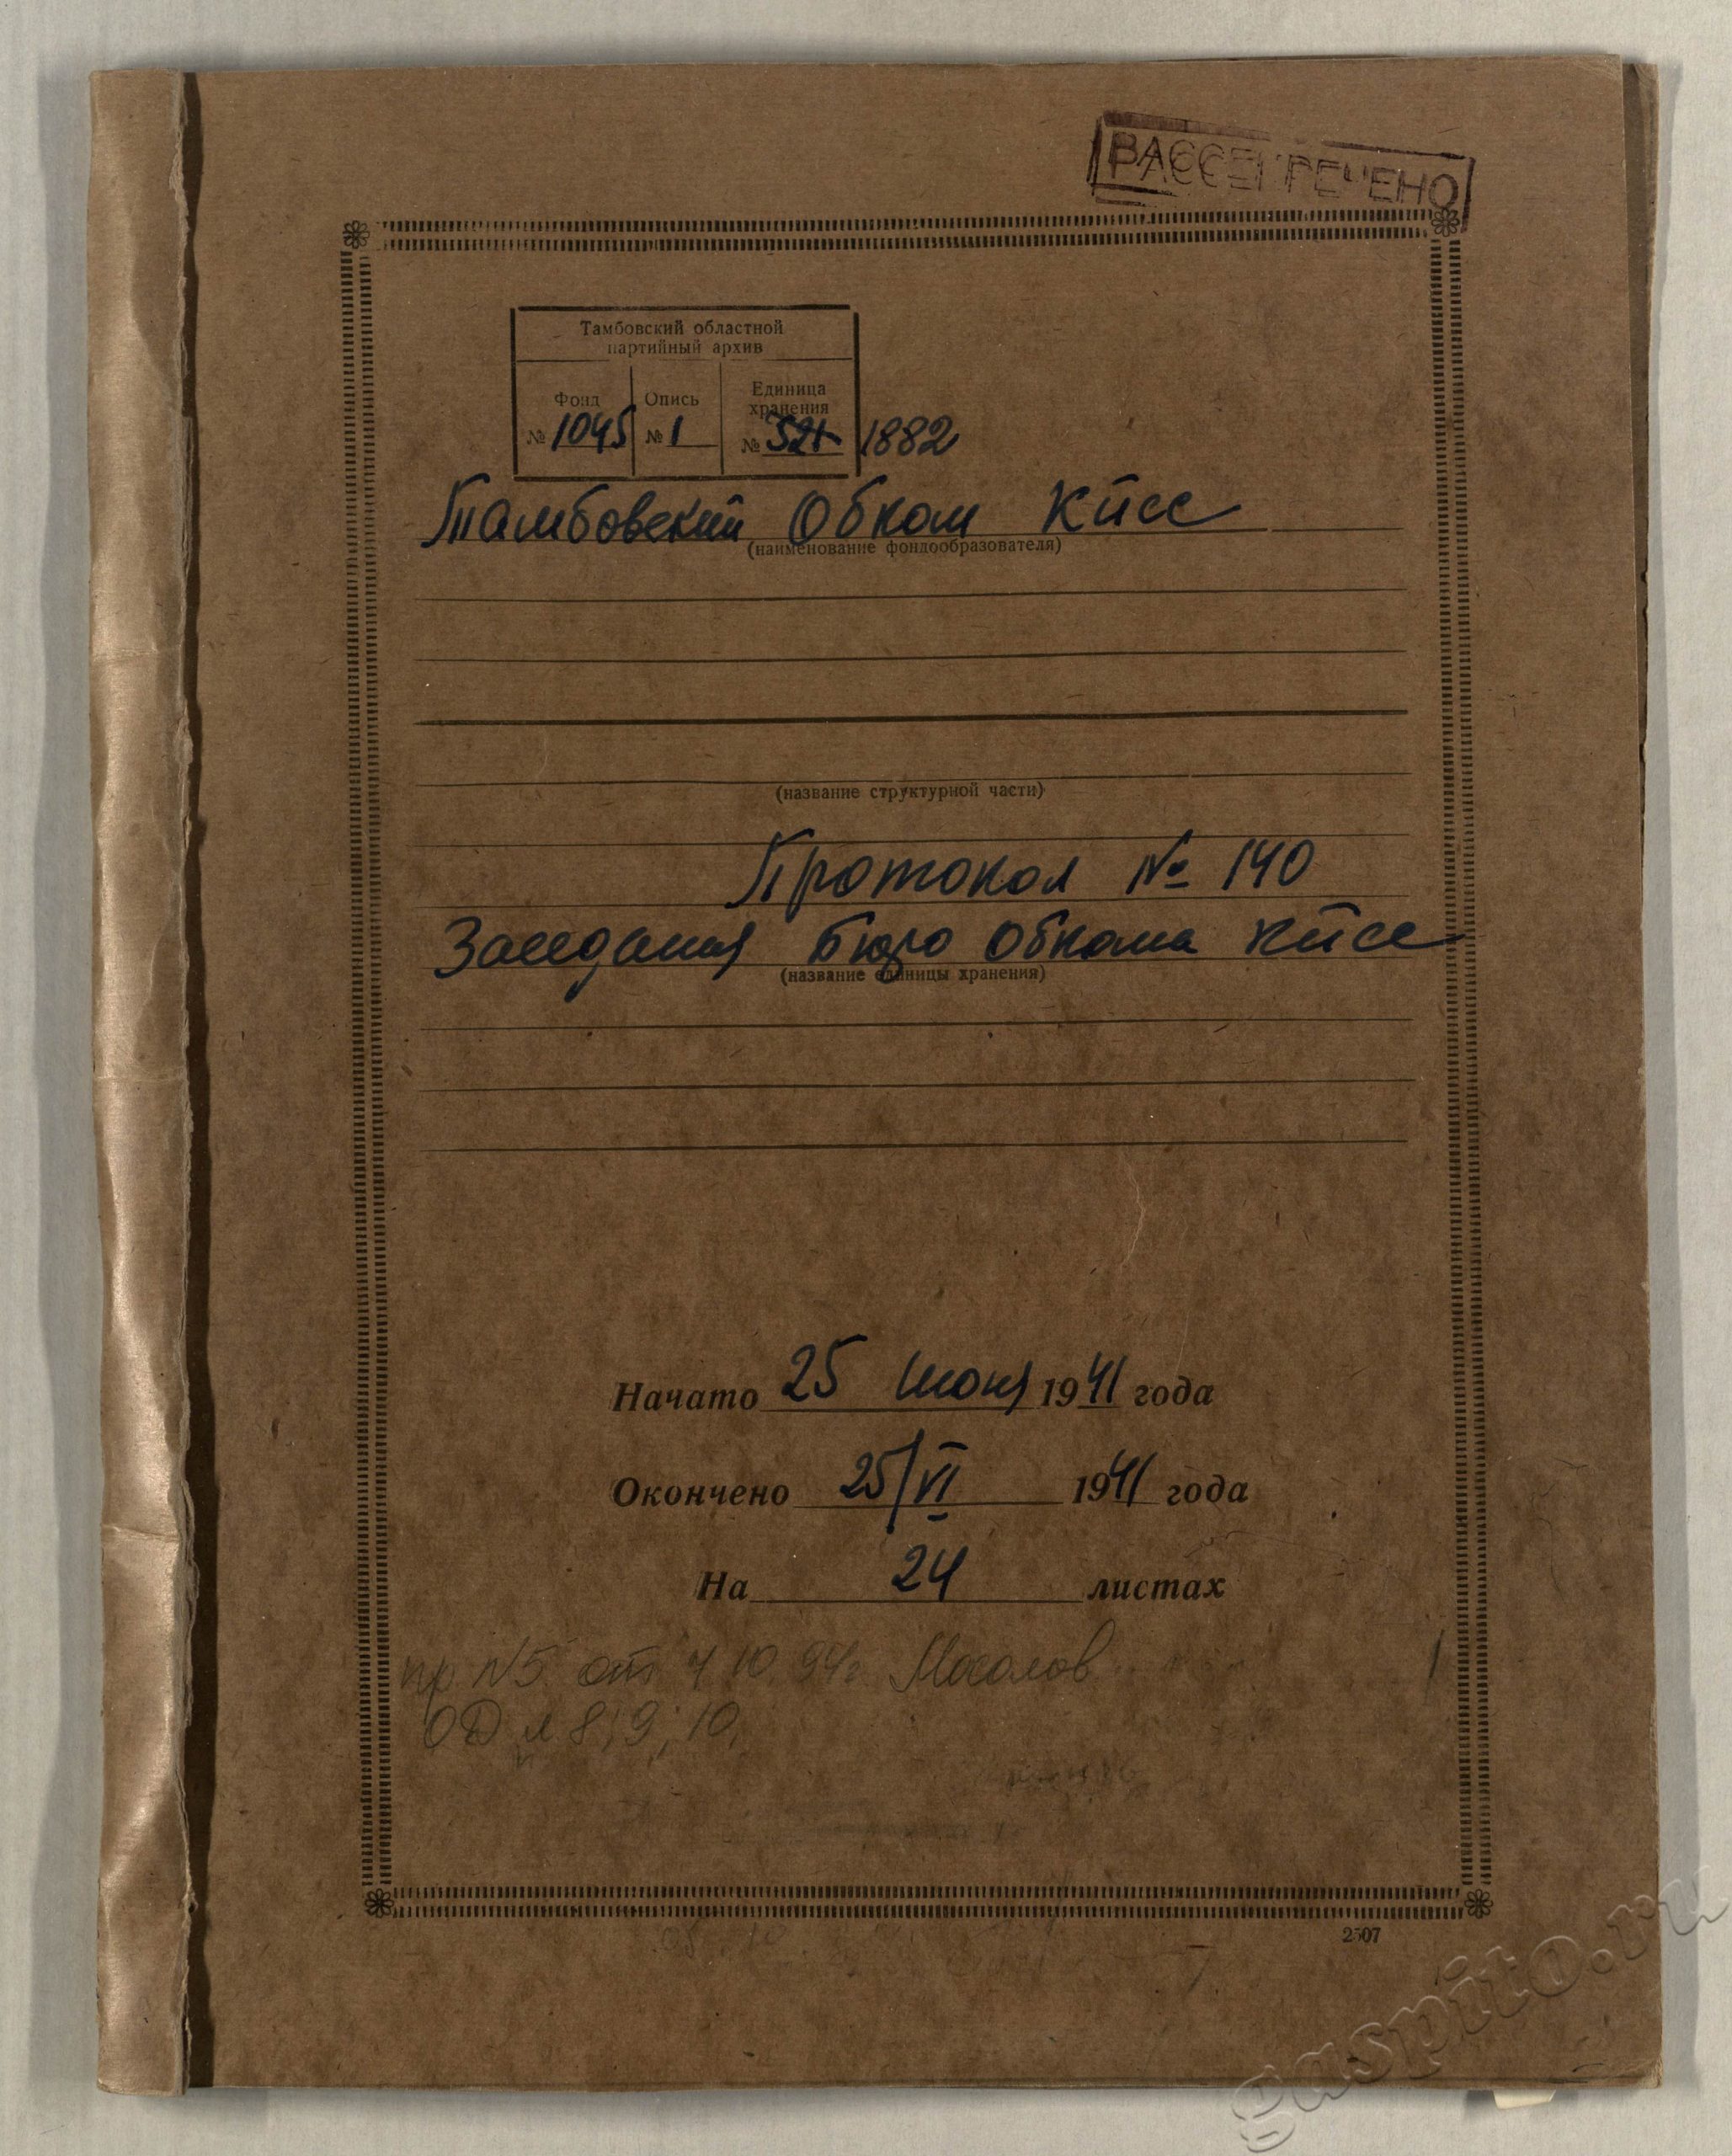 РАССЕКРЕЧЕНО
Тамбовский областной
партийный архив
Фонд Опись Единица хранения
№ 1045 № 1 № 521 1882
Тамбовский Обком КПСС
(наименование фондообразователя)
(название структурной части)
Протокол № 140
Заседания бюро обкома КПСС
(название единицы хранения)
Начато 25 июня 1941 года
Окончено 25/VI 1941 года
На 24 листах
пр. №5 от 4 10 94г. Мосолов
ОД л 8, 9, 10,
2507
gaspito.ru